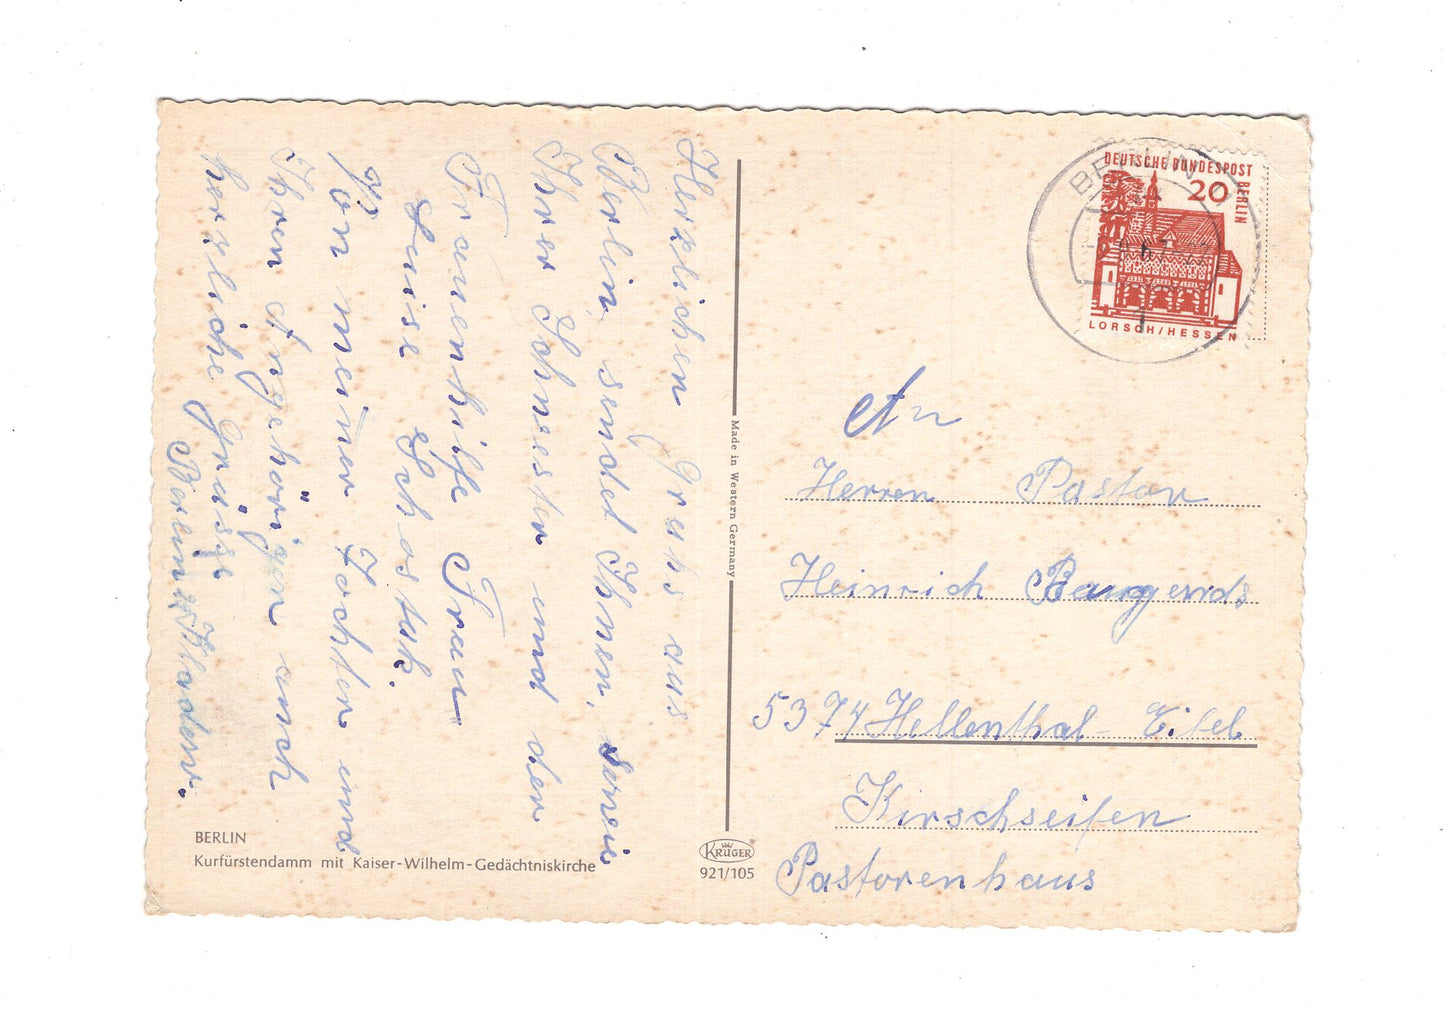 Herzlichen Gruhs aus
Berlin, sendet Ihnen,
Ihrer Schwester und der
Frauenhilfe Frau
Luise Schostak.
Von meiner Tochter und
Ihren Angehörigen auch
herzliche Grüsse
Berlin
BERLIN
Kurfürstendamm mit Kaiser-Wilhelm-Gedächtniskirche
Made in Western Germany
KRÜGER
921/105
DEUTSCHE BUNDESPOST
BERLIN
20
LORSCH/HESSEN
BERLIN
1
An
Herren Pastor
Heinrich
5374 Hellenthal-Eifel
Kirschseifen
Pastorenhaus